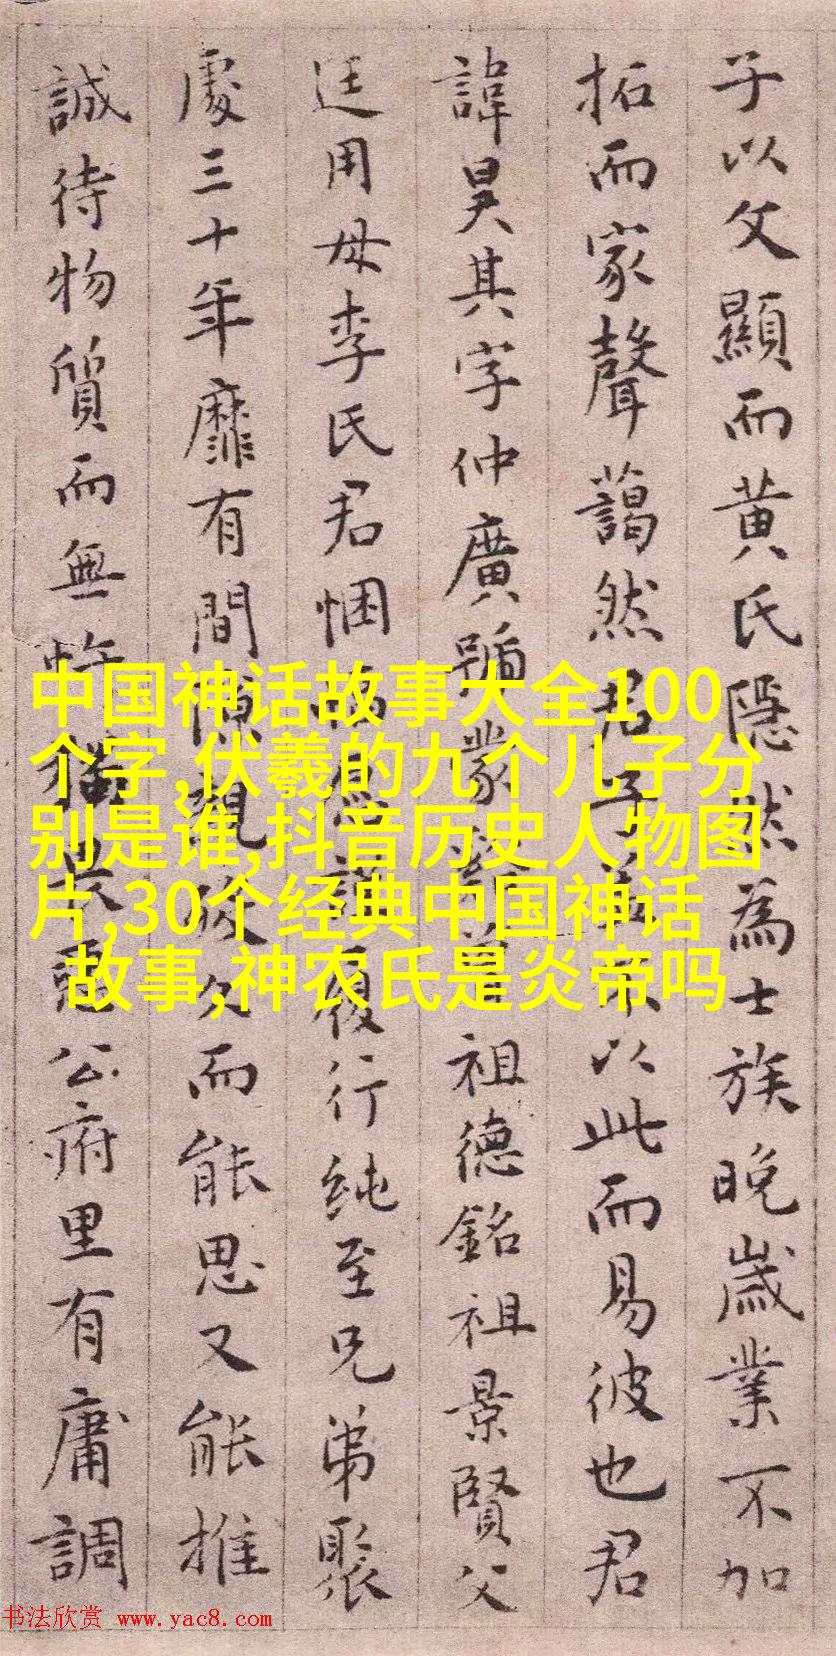 子以父顯而黃氏隱然為士族晚歲業不加
拓而家聲藹然君子以此而易彼也君
諱昊其字仲廣號蒙祖德銘祖景賢父
廷用母李氏君悃愊履行純至兄弟聚
處三十年靡有間隙觀放久而能思又能推
誠待物質而無公府里有庸調
中国神话故事大全100
个字,伏羲的九个儿子分
别是谁,抖音历史人物图
片,30个经典中国神话
故事,神农氏是炎帝吗
书法欣赏 www.yac8.com